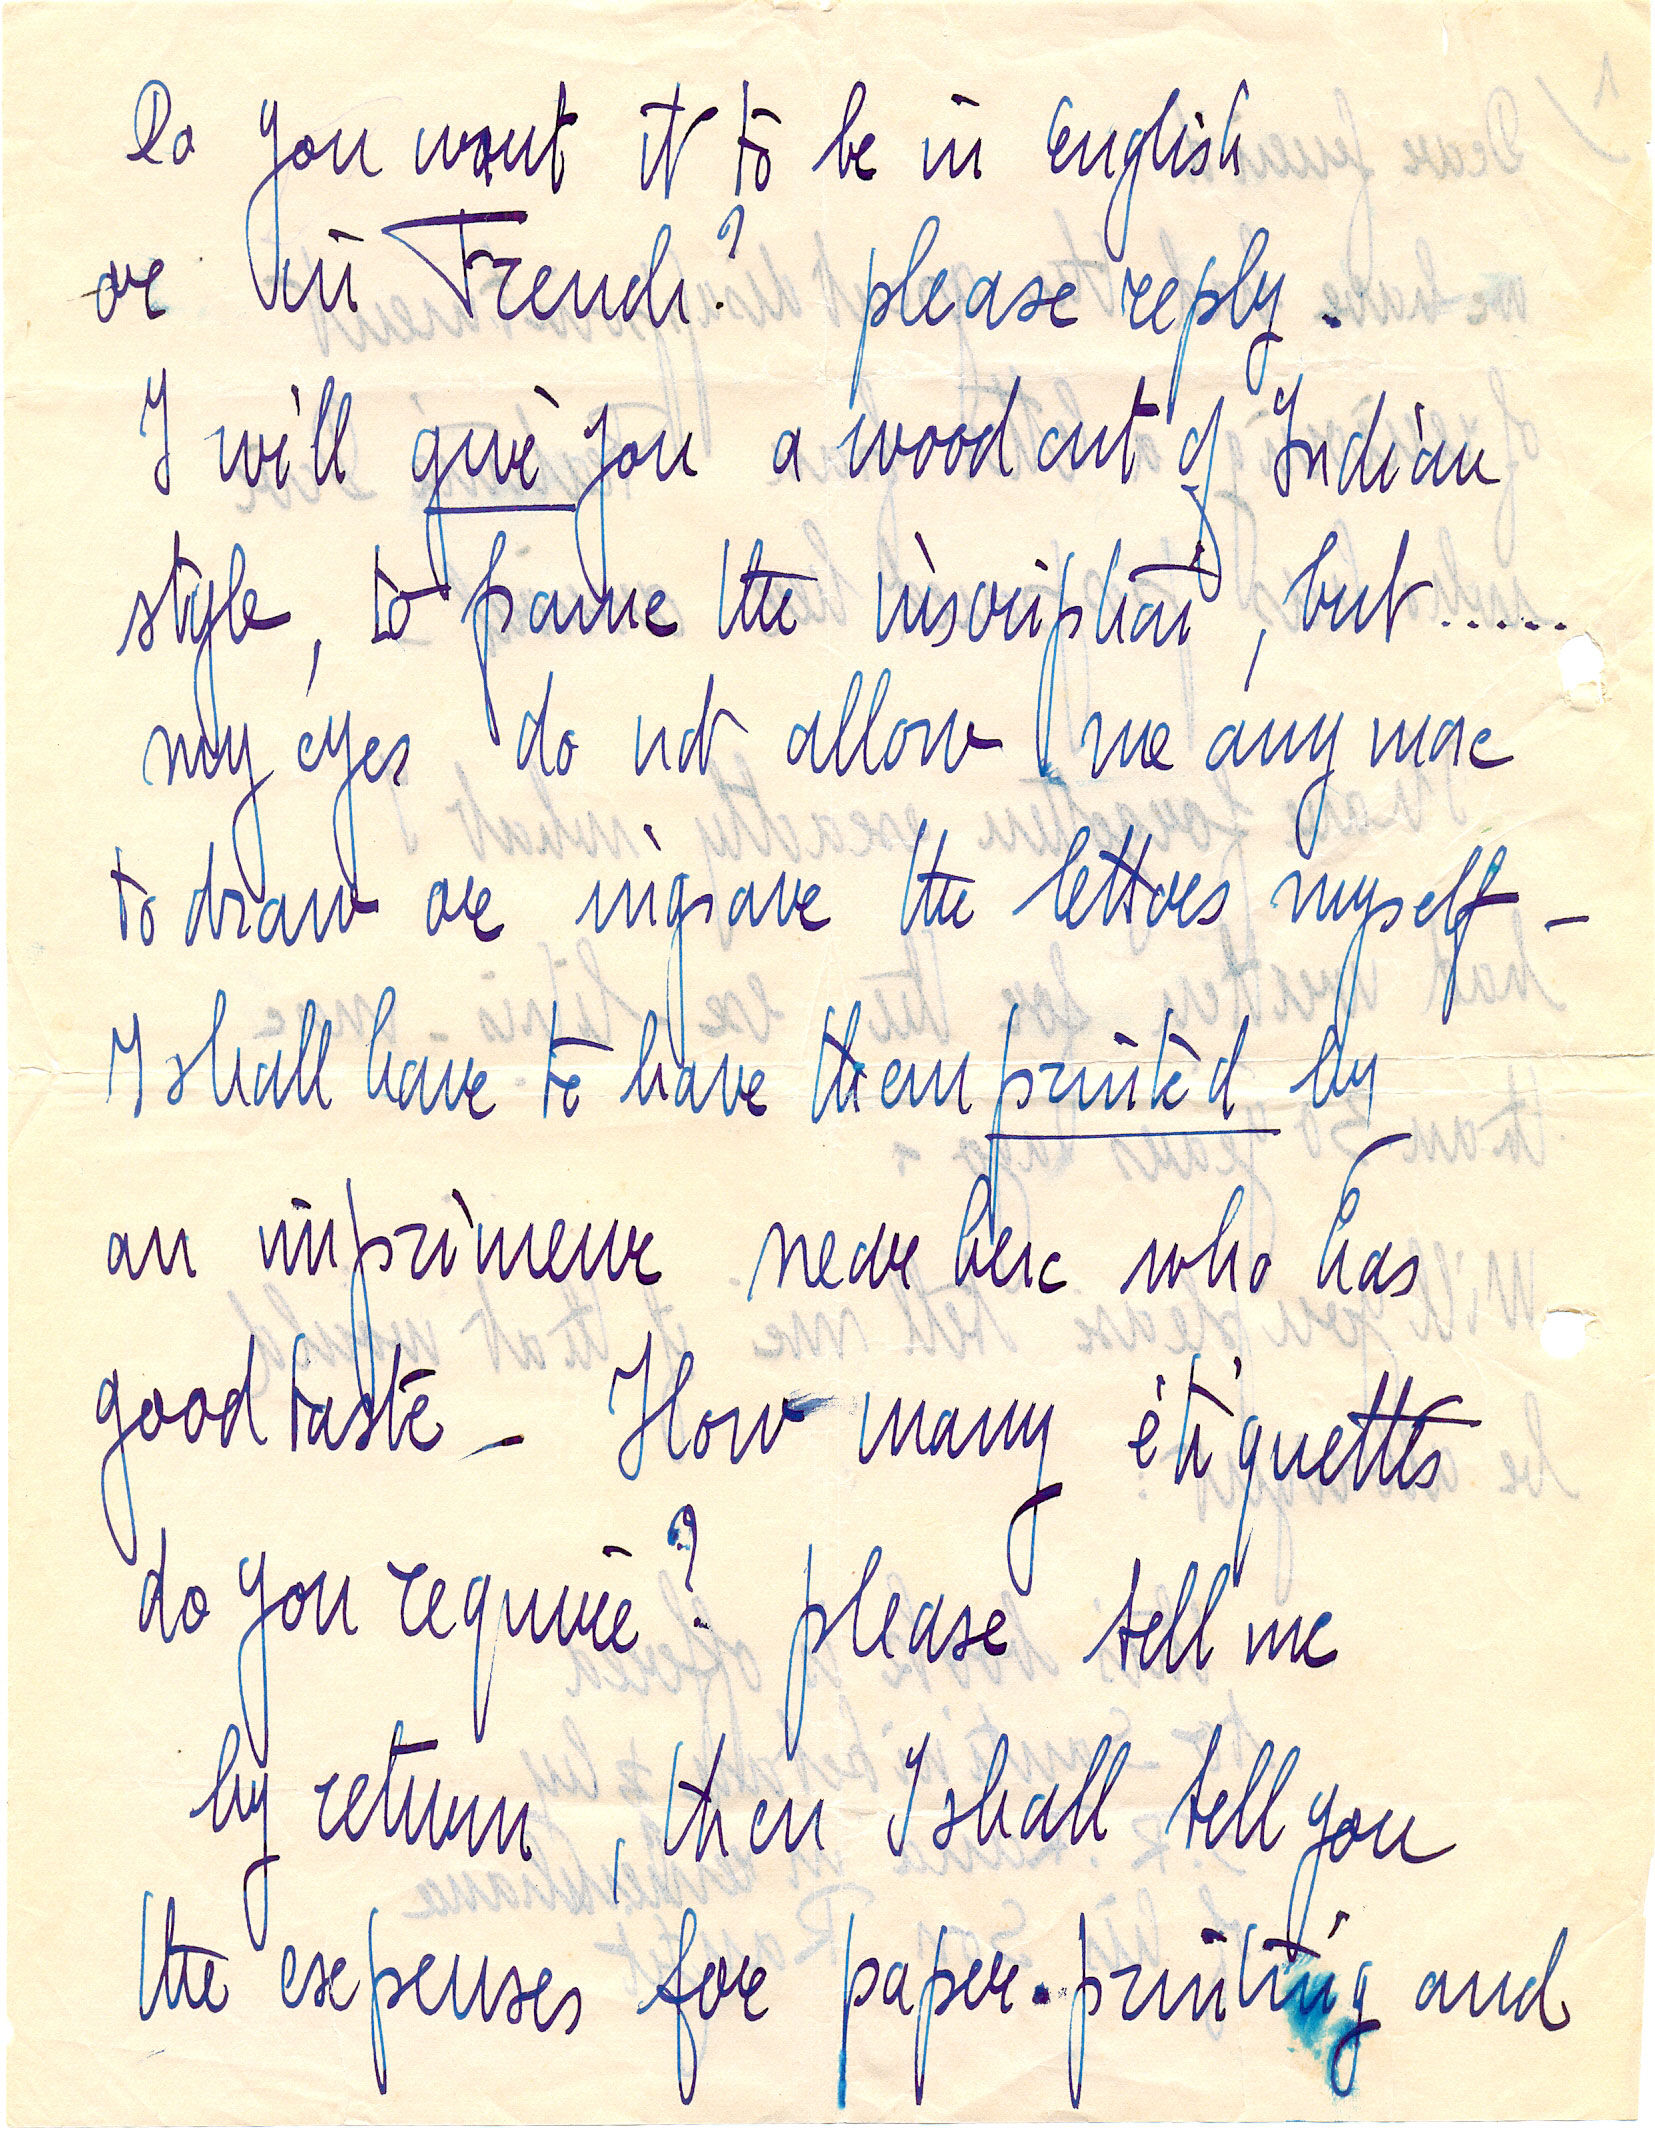 Do you want it to be in English
or in French? please reply.
I will give you a wood cut of Indian
style, to frame the inscription, but.....
my eyes do not allow me any more
to draw or ingrave the letters myself –
I shall have to have them printed by
an imprimeur near here who has
good taste – How many étiquettes
do you require? please tell me
by return, then I shall tell you
the expenses for paper-printing and